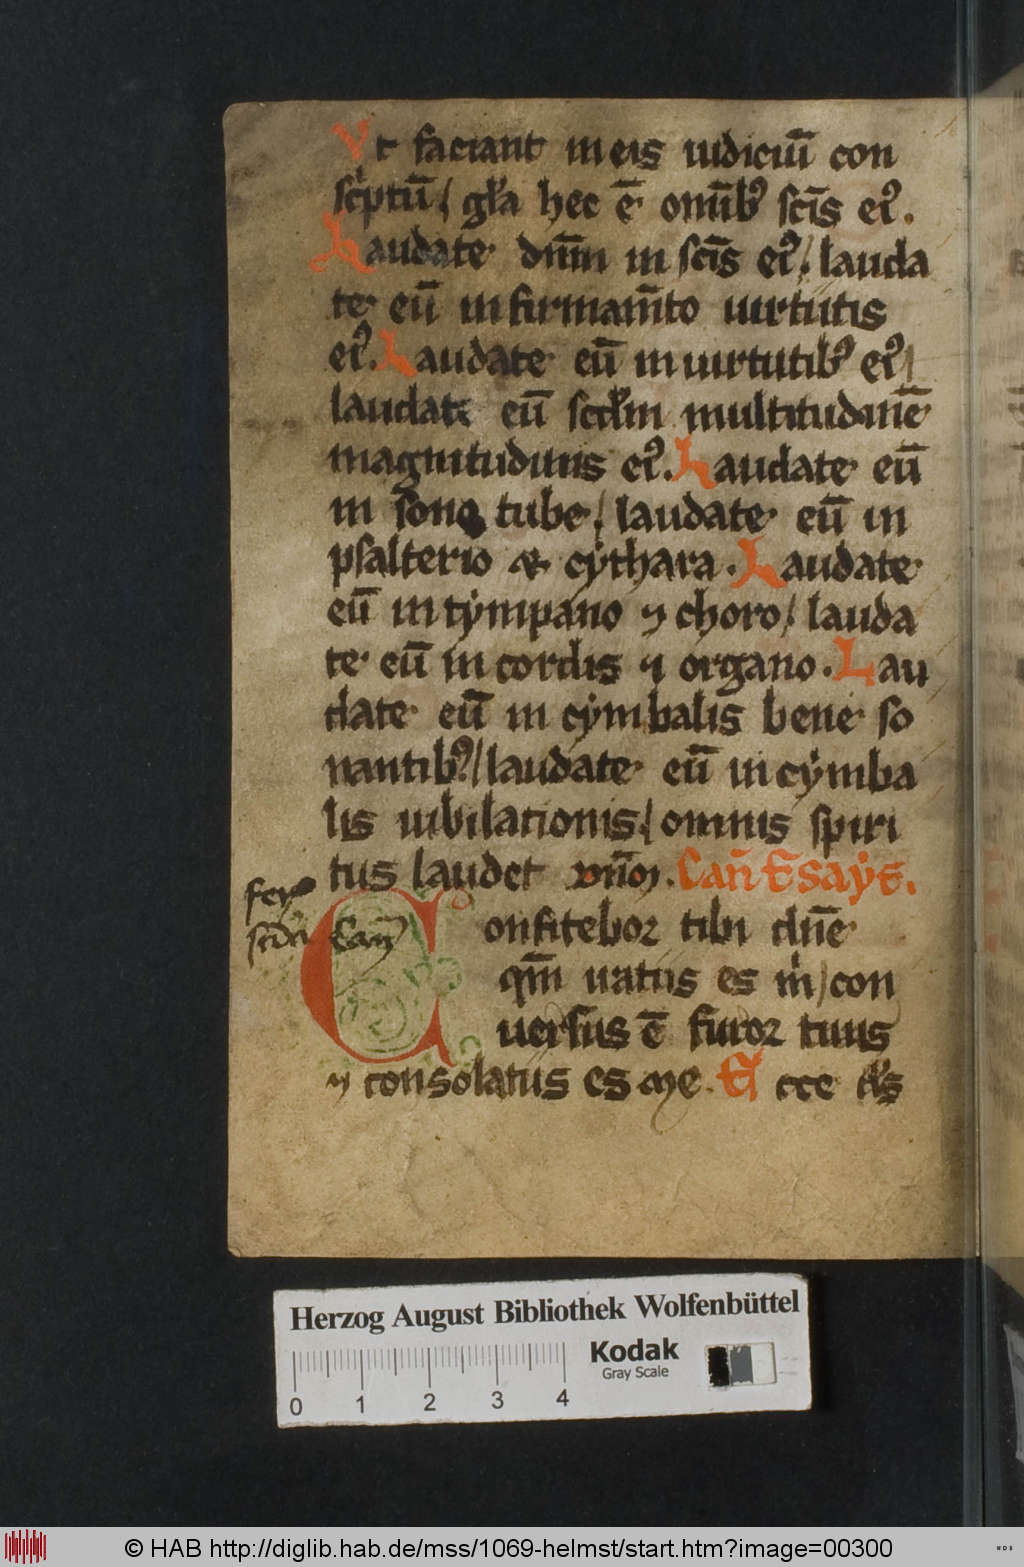 Vt faciant in eis iudiciū con
sc͛ptū / gl̃a hec ē omīb⁹ scīs ei⁹.
Laudate dn̄m in scīs ei⁹ / lauda
te eū in firmam̄to uirtutis
ei⁹. Laudate eū in uirtutib⁹ ei⁹ /
laudate eū scd̃m multitudinē
magnitudinis ei⁹. Laudate eū
in sono tube / laudate eū in
psalterio & cẏthara. Laudate
eū in tẏmpano ⁊ choro / lauda
te eū in cordis ⁊ organo. Lau
date eū in cẏmbalis bene so
nantib⁹ / laudate eū in cẏmba
lis iubilationis / omnis spiri
tus laudet dn̄m. Can̄ Esaẏe.
Confitebor tibi dn̄e
qm̄ iratus es m͛ / con
uersus ē furor tuus
⁊ consolatus es me. Ecce d̃s
Herzog August Bibliothek Wolfenbüttel
Kodak
Gray Scale
0 1 2 3 4
© HAB http://diglib.hab.de/mss/1069-helmst/start.htm?image=00300